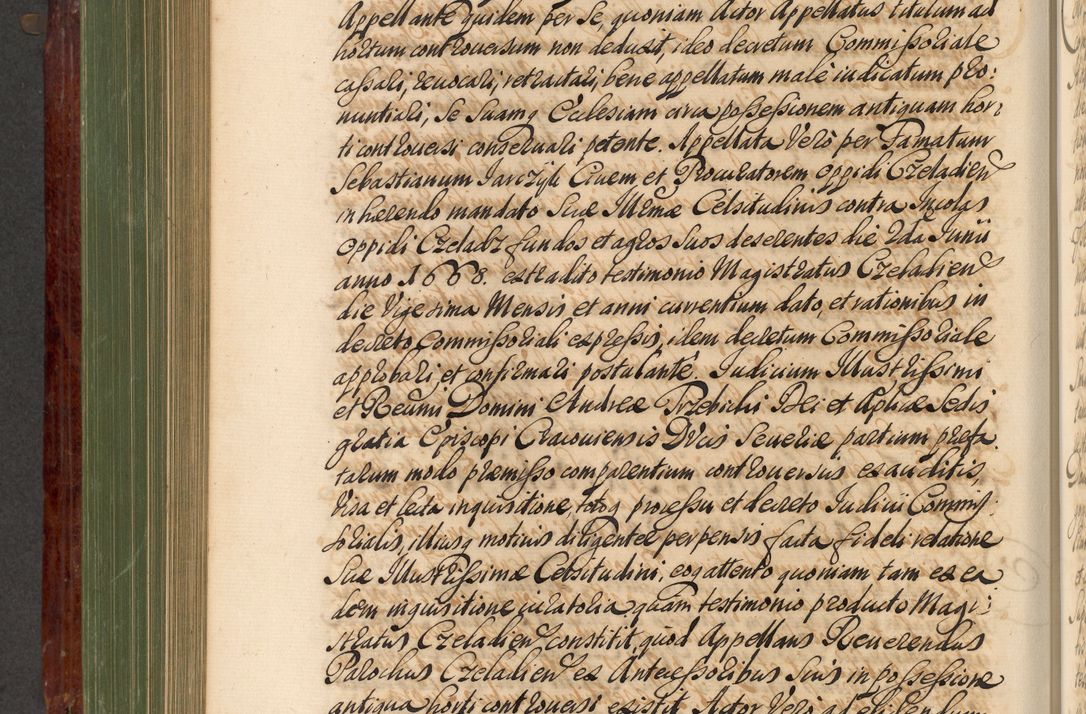 Appellante quidem per se, quoniam Actor Appellatus titulum ad
hortum controversum non deduxit, ideo decretum Commissoriale
cassari, revocari, retractari, bene appellatum malè iudicatum pro:
nuntiari, se suamq Ecclesiam circa possessionem antiquam hor:
ti controuersi conseruari petente. Appellata Verò per Famatum
Sebastianum Jarczyk Ciuem et Procuratorem oppidi Czeladien
inhærendo mandato Suæ Illmæ Celsitudinis contra Incolas
oppidi Czeladz fundos et agros suos deserentes die 2da Junii
anno 1668. extradito testimonio Magistratus Czeladien
die Vigesima Mensis et anni currentium dato, et rationibus in
decreto Commissoriali expressis, idem decretum Commissoriale
approbari, et confirmari postulante. Judicium Illustrissimi
et Reumi Domini Andreæ Trzebicki Dei et Aplicæ Sedis
gratia Episcopi Cracouiensis Ducis Seueriæ partium præfa
tarum modo præmisso comparentium controuersiis exauditis,
Visa et lecta inquisitione, totoq processu et decreto Iudicii Commis
sorialis, illiusq motiuis diligenter perpensis facta fideli relatione
Suæ Illustrissimæ Celsitudini, eo attento quoniam tam ex ea
dem inquisitione iuratoria quàm testimonio producto Magi:
stratus Czeladien constitit, quòd Appellans Reuerendus
Parochus Czeladien ex Antecessoribus suis in possessione
antiqua horti controuersi existit, Actor Verò ad